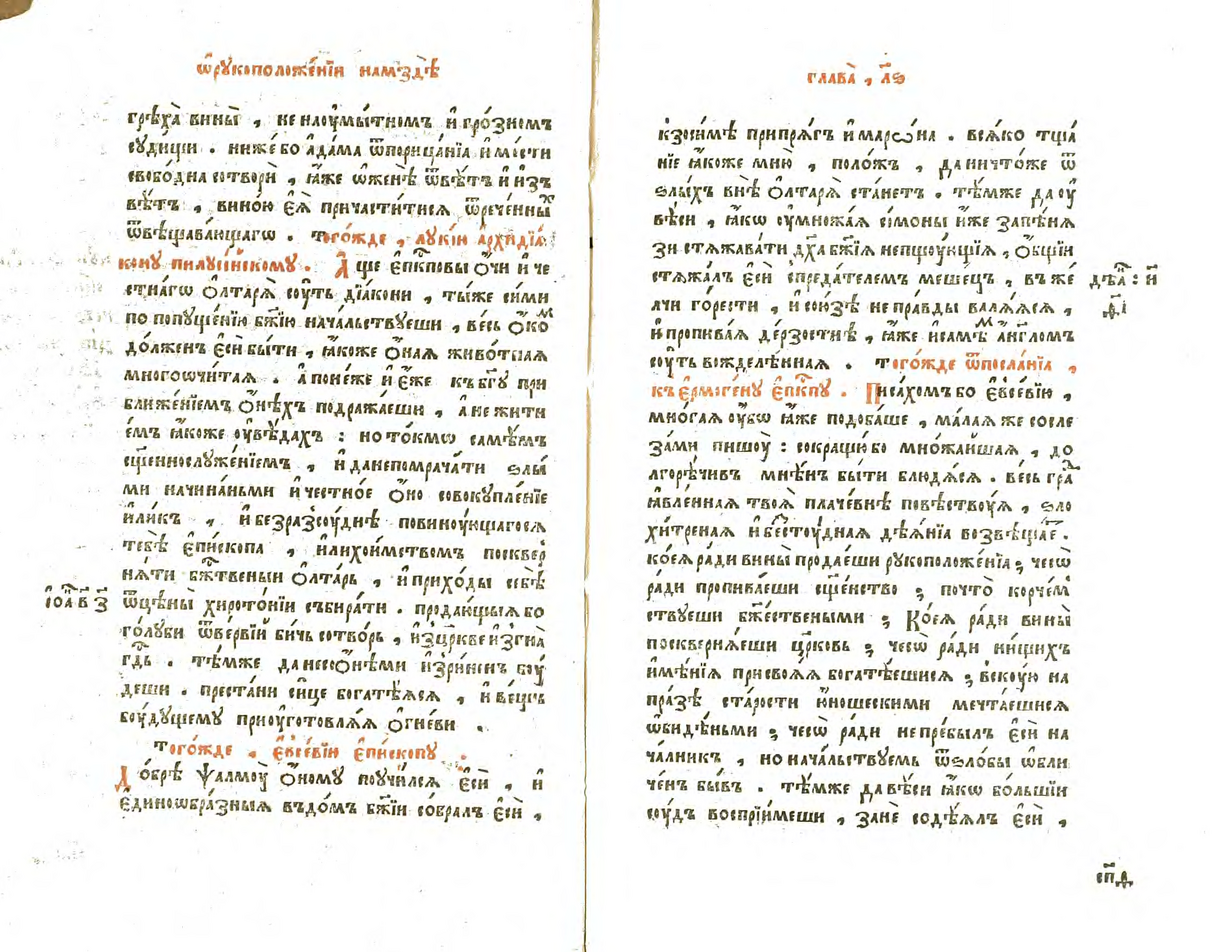 ѿрꙋкоположе́нїи намздѣ̀
грѣха̀ вины̀ , не наоу҆мы́тномъ и҆ гро́зномъ
сꙋди́щи . ниже́ бо а҆да́ма ѿпорица́нїѧ и҆ ме́сти
свобо́дна сотворѝ , ꙗ҆́же ѡ҆женѣ̀ ѿвѣ́тъ и҆ и҆зъ
вѣ́тъ , вино́ю є҆ѧ̀ причасти́тисѧ ѿрече́нныⷯ
ѿвѣщава́ющагѡ . того́жде , лꙋкі́и а҆рхидїѧ́
конꙋ пилꙋсі́искомꙋ . А҆́ще є҆пⷭ҇кповы ѻ҆́чи и҆ че
стна́гѡ ѻ҆лтарѧ̀ соу́ть дїа́кони , ты́же си́ми
по попꙋще́нїю бж҃їю нача́льствꙋеши , ве́сь ѻ҆́коⷨ
до́лженъ є҆сѝ бы́ти , ꙗ҆́коже ѻ҆́наѧ живо́тнаѧ
многоѡчи́таѧ . а҆ поне́же и҆ є҆́же къ бг҃ꙋ при
ближе́нїемъ ѻ҆нѣ́хъ подража́еши , а҆ не жити
е́мъ ꙗ҆́коже оу҆вѣ́дахъ : но то́кмѡ самѣ́мъ
сщ҃еннослꙋже́нїемъ , и҆ да непомрача́ти ѕлы́
ми начина́ньми и҆ че́стно́е ѻ҆́но совокꙋпле́нїе
и҆ ли́къ , и҆ безразсоу́днѣ повинꙋ́ющагосѧ
тебѣ̀ є҆пи́скопа , и҆ лихои́мствомъ посквер
нѧ́ти бж҃твеныи ѻ҆лта́рь , и҆ прихо́ды себѣ̀
і҆ѡа҃ в҃ з҃
ѿцѣны̀ хирото́нїи събира́ти . продаю́щыѧ бо
го́лꙋби ѿве́рвїи би́чь сотво́рь , и҆зцр҃кве и҆згна̀
гд҇ь . тѣ́мже да не со ѻ҆нѣ́ми и҆зри́ненъ боу́
деши . преста́ни си́це богатѣ́ѧсѧ , и҆ ве́щь
боу́дꙋщемꙋ приоу҆готовлѧ́ѧ ѻ҆гне́ви .
того́жде . є҆ѵсе́вїю є҆пи́скопꙋ .
До́брѣ ѱалмоу̀ ѻ҆́номꙋ поꙋчи́лсѧ є҆сѝ , и҆
є҆диноѡбра́зныѧ въ до́мъ бж҃їи собра́лъ є҆сѝ ,
глава̀ , л҃ѕ
к зоси́мѣ припрѧ́гъ и҆ марѡ́на . всѧ́ко тща́
нїе ꙗ҆́коже мню̀ , поло́жъ , да ничто́же ѿ
ѕлы́хъ внѣ̀ ѻ҆лтарѧ̀ ста́нетъ . тѣ́мже да оу҆
вѣ́си , ꙗ҆́кѡ оу҆множа́ѧ сі́моны и҆̀же за пѣ́нѧ
зи стѧжава́ти дх҃а бж҃їѧ непщꙋ́ющїѧ , ѻ҆́бщїи
стѧжа́лъ є҆сѝ с предателемъ меше́цъ , въ же́
дѣѧ҃ : и҃
лчи го́рести , и҆ сою́зѣ не пра́вды валѧ́ѧсѧ ,
и҆ пропива́ѧ де́рзостнѣ , ꙗ҆́же и҆ самѣⷨ а҆́нг҃ломъ
соу́ть вожделѣ́ннаѧ . того́жде ѿпосла́нїѧ ,
къ є҆рмоге́нꙋ є҆пⷭ҇кпꙋ . Писа́хомъ бо є҆ѵсе́вїю ,
мно́гаѧ оу҆́бѡ ꙗ҆́же подоба́ше , ма́лаѧ же со сле
за́ми пишоу̀ : сокращю́ бо мно́жаишаѧ , до
лгорѣ́чивъ мнѣ́нъ бы́ти блюдѧ́сѧ . ве́сь граⷣ
ꙗ҆вле́ннаѧ твоѧ̀ плаче́внѣ повѣ́ствꙋѧ , ѕло
хи́тренаѧ и҆ бестоу́днаѧ дѣѧ́нїѧ возвѣща́еⷮ .
ко́еѧ ра́ди вины̀ продае́ши рꙋкоположе́нїѧ ; чесѡ̀
ра́ди пропива́еши сщ҃е́нство ; почто̀ корче́м
ствꙋеши бж҃е́ствеными ; Ко́еѧ ра́ди вины̀
посквернѧ́еши цр҃ковь ; чесѡ̀ ра́ди ни́щихъ
и҆мѣ́нїѧ присвоѧ́ѧ богатѣ́ешисѧ ; вскоу́ю на
пра́зѣ ста́рости ю҆́ношескими мечта́ешисѧ
ѡ҆би́дѣньми ; чесѡ̀ ра́ди не пре́былъ є҆сѝ на
ча́лникъ , но нача́льствꙋемь ѿѕло́бы ѡ҆бли
че́нъ бы́въ . тѣ́мже да вѣ́си ꙗ҆́кѡ бо́льшїи
соу́дъ воспрїи́меши , занѐ содѣ́ѧлъ є҆сѝ ,
сп҃д